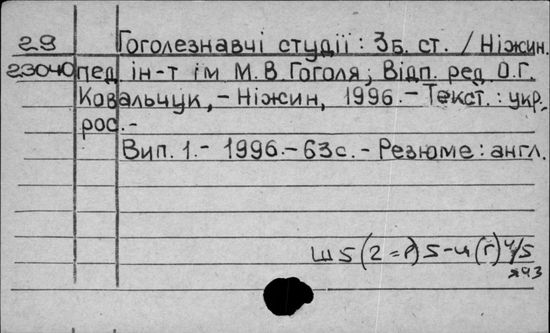 29 Гоголезнавчі студії : Зб. ст. / Ніжин.
23040 пед. ін-т ім. М.В. Гоголя; Відп. ред. О.Г.
Ковальчук, – Ніжин, 1996. – Текст. : укр.,
рос. –
Вип. 1. – 1996. – 63 с. – Резюме : англ.
Ш5(2=Р)5-4(Г)4/5
я43